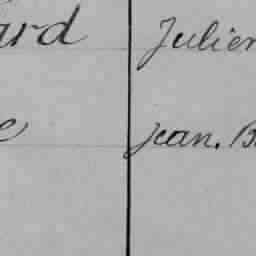 ard Julien
e Jean. B